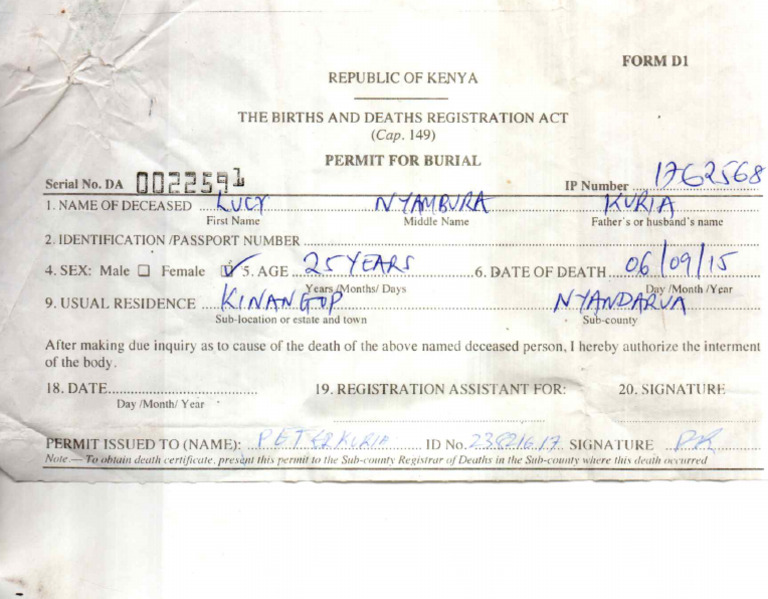 FORM D1
REPUBLIC OF KENYA
THE BIRTHS AND DEATHS REGISTRATION ACT
(Cap. 149)
PERMIT FOR BURIAL
Serial No. DA 0022591 IP Number 1762568
1. NAME OF DECEASED LUCY NYAMBURA KURIA
First Name Middle Name Father's or husband's name
2. IDENTIFICATION /PASSPORT NUMBER
4. SEX: Male ☐ Female ☑ 5. AGE 25 YEARS 6. DATE OF DEATH 06/09/15
Years /Months/ Days Day /Month /Year
9. USUAL RESIDENCE KINANGOP NYANDARUA
Sub-location or estate and town Sub-county
After making due inquiry as to cause of the death of the above named deceased person, I hereby authorize the interment
of the body.
18. DATE 19. REGISTRATION ASSISTANT FOR: 20. SIGNATURE
Day /Month/ Year
PERMIT ISSUED TO (NAME): PETER KURIA ID No. 23821617 SIGNATURE PK
Note.— To obtain death certificate, present this permit to the Sub-county Registrar of Deaths in the Sub-county where this death occurred